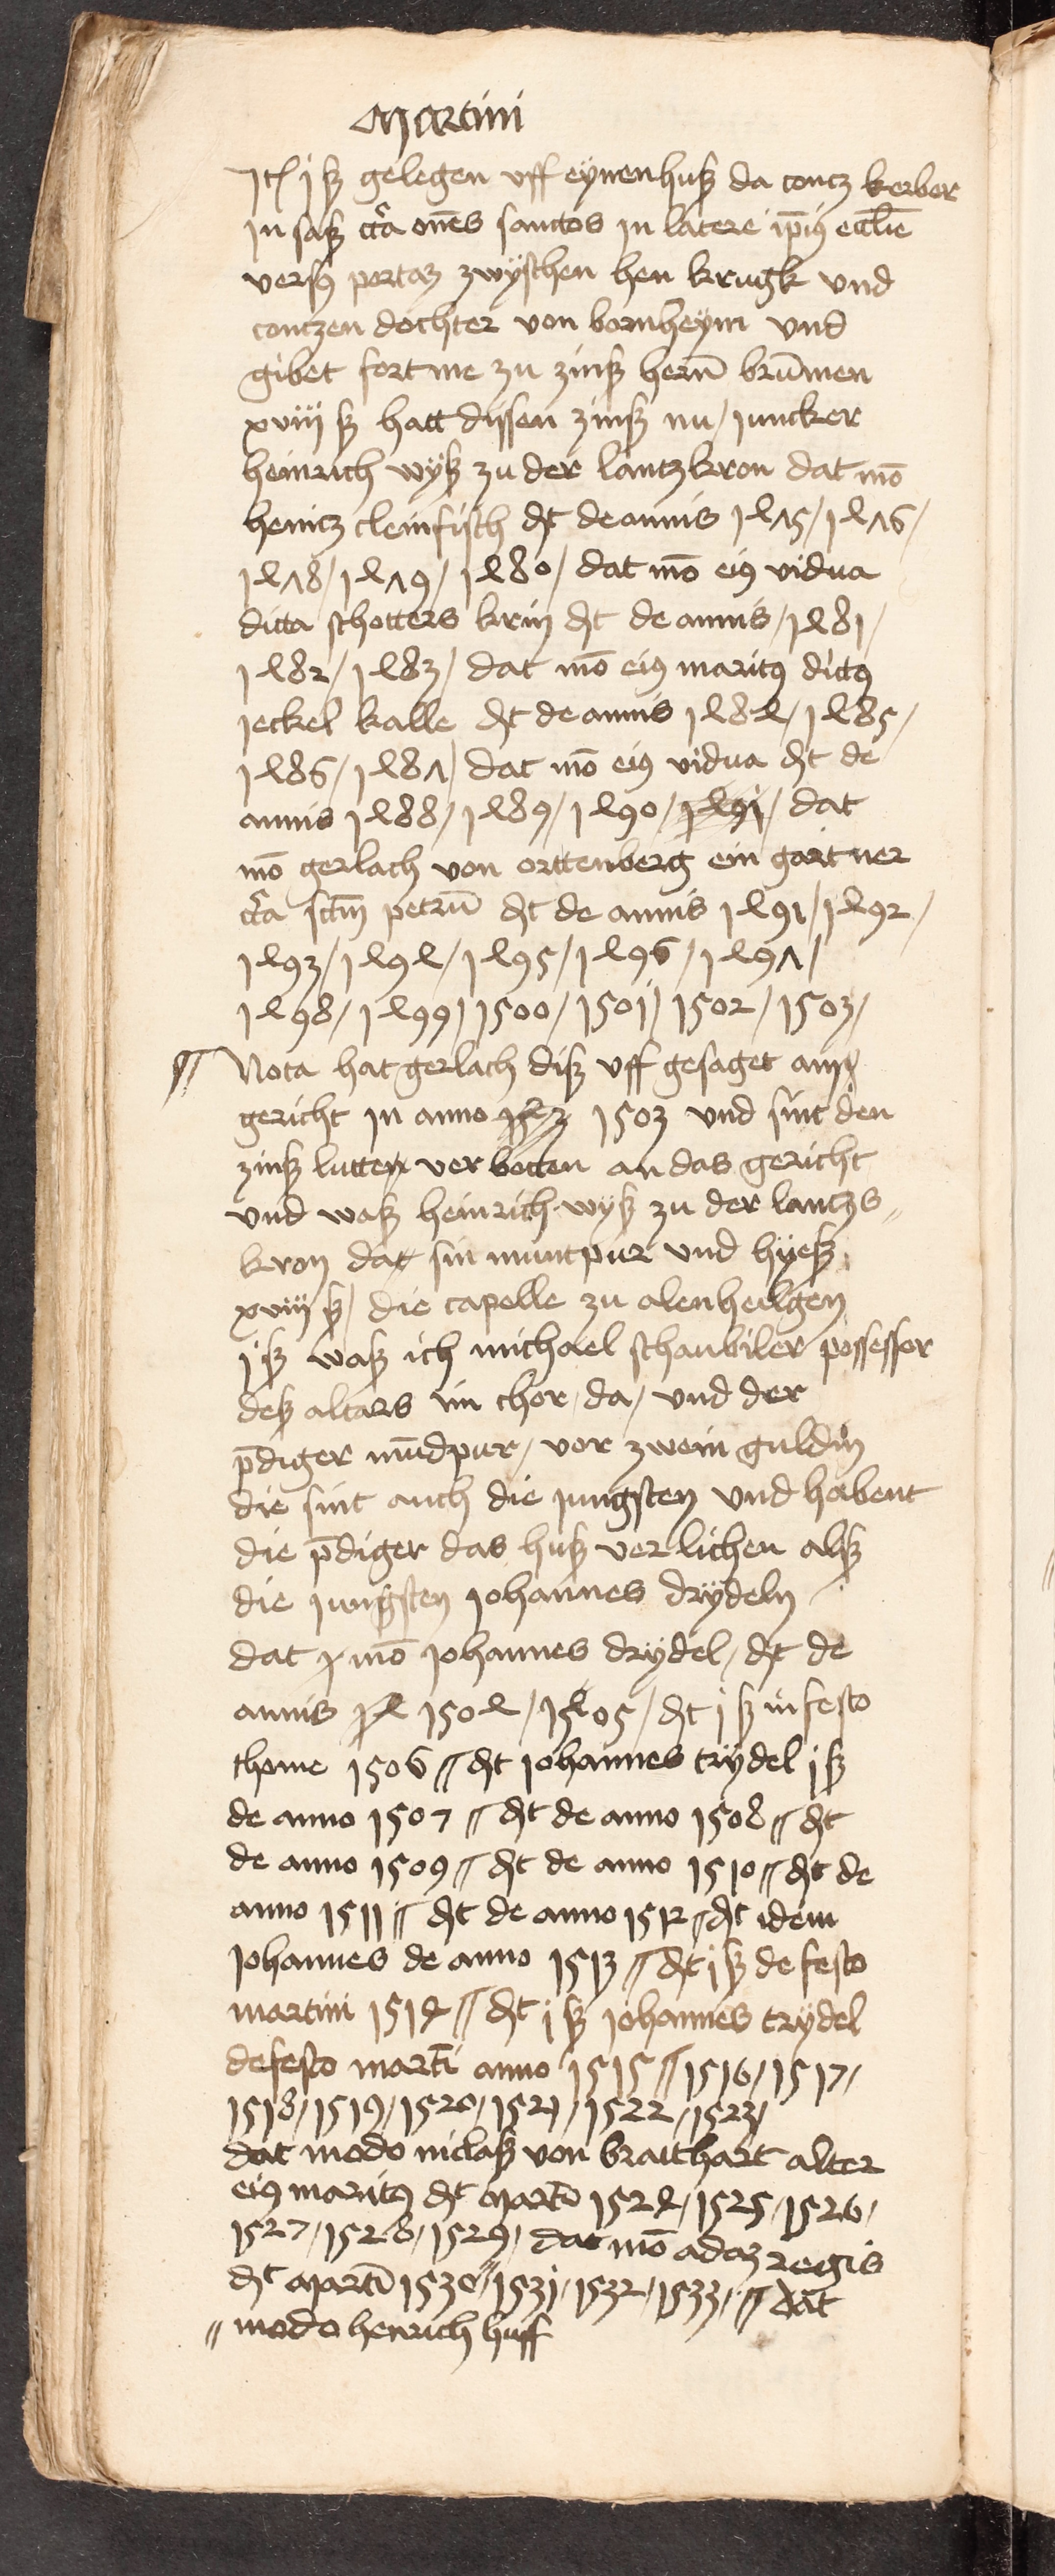 Martini
Jt(em) j ß gelegen uff eynen huß da contz kerber
jn saß c(ont)ra om̄es sanctos in latere ip̄i(us) eccl(es)ie
vers(us) porta(m) zwyschen hen krugk und
contzen dochter von bornheym und
gibet fort me zu zinß hern̄ brūmen
xviij ß hatt dissen zinß nu / juncker
heinrich wyß zu der lantzkron dat mō
heintz cleinfisch d(edi)t de annis 1475 / 1476 /
1478 / 1479 / 1480 / dat mō ei(us) vidua
dicta schotters krin d(edi)t de annis / 1481 /
1482 / 1483 / dat mō ei(us) marit(us) dict(us)
jeckel kalle d(edi)t de annis 1484 / 1485 /
1486 / 1487 / dat mō ei(us) vidua d(edi)t de
annis 1488 / 1489 / 1490 / 1491 / dat
mō gerlach von orttenberg ein gartner
c(ont)ra sctm̄ petrū d(edi)t de annis 1491 / 1492 /
1493 / 1494 / 1495 / 1496 / 1497 /
1498 / 1499 / 1500 / 1501 / 1502 / 1503 /
Nota hat gerlach diß uff gesaget am
gericht in anno 1503 und sint den
zinß lutten verbotten an das gericht
und waß heinrich wyß zu der lantzs
kron da sin muntpur und hyesß
xviij ß / die capelle zu alenheilgen
j ß waß ich michael schaubiler possessor
deß altars im chor da / und der
p̄diger mūdpur / vor zwein guldin
die sint auch die jungsten und habent
die p̄diger das huß verlichen alß
die jungsten johannes drydeln
dat mō johannes drydel / d(edi)t de
annis 1504 / 1505 / d(edi)t j ß in festo
thome 1506 // d(edi)t johannes trydel j ß
de anno 1507 // d(edi)t de anno 1508 // d(edi)t
de anno 1509 // d(edi)t de anno 1510 // d(edi)t de
anno 1511 // d(edi)t de anno 1512 // d(edi)t idem
johannes de anno 1513 // d(edi)t j ß de festo
martini 1514 // d(edi)t j ß johannes trydel
de festo martī anno 1515 // 1516 / 1517 /
1518 / 1519 / 1520 / 1521 / 1522 / 1523 /
dat modo niclaß von bratthart alter
ei(us) marit(us) d(edi)t martī 1524 / 1525 / 1526 /
1527 / 1528 / 1529 / dat mō adam regis
d(edi)t martī 1530 // 1531 / 1532 / 1533 / // dat
// modo henrich huff